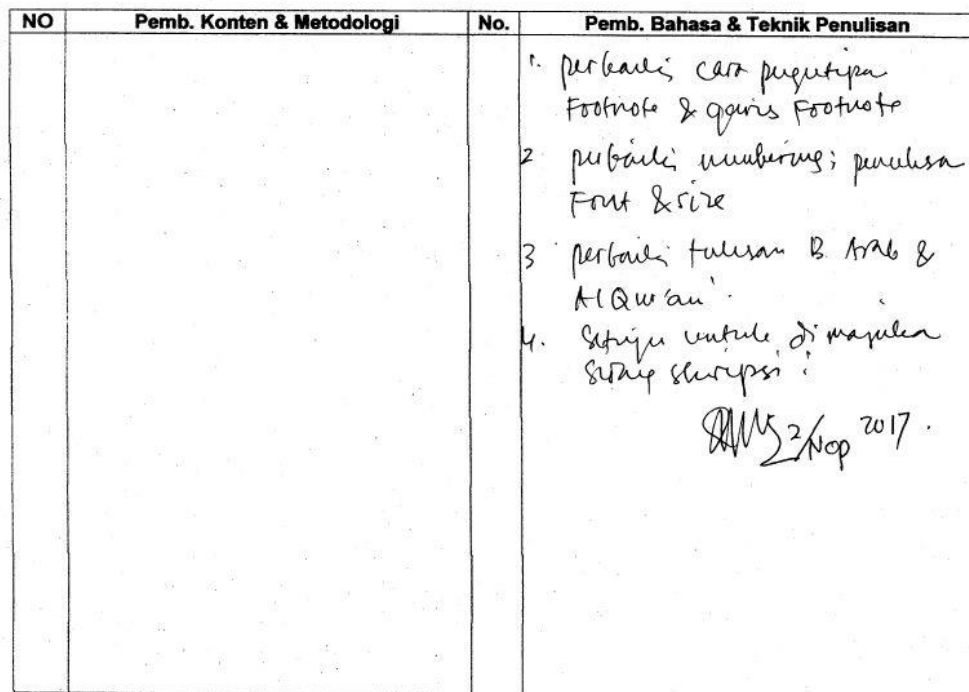 NO Pemb. Konten & Metodologi No. Pemb. Bahasa & Teknik Penulisan
1. perbaiki cara pengutipan
Footnote & garis Footnote
2 perbaiki numbering; penulisan
Font & size
3 perbaiki tulisan B. Arab &
Al Qur'an.
4. Setuju untuk dimajukan
Sidang skripsi!
2/Nop 2017.